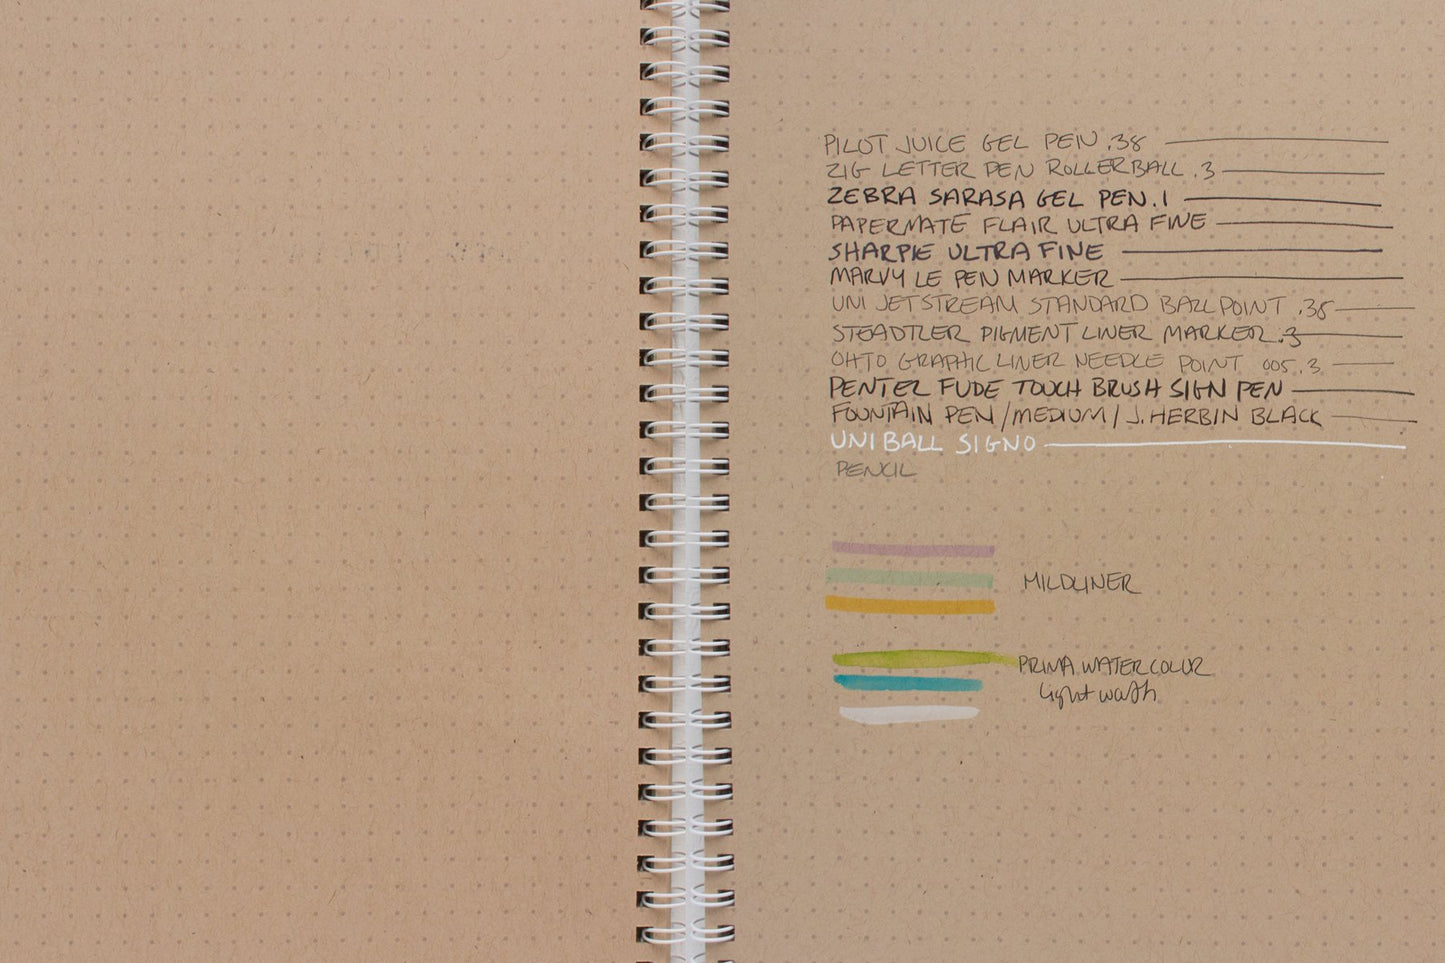 PILOT JUICE GEL PEN .38
ZIG LETTER PEN ROLLERBALL .3
ZEBRA SARASA GEL PEN .1
PAPERMATE FLAIR ULTRA FINE
SHARPIE ULTRA FINE
MARVY LE PEN MARKER
UNI JETSTREAM STANDARD BALLPOINT .38
STEADTLER PIGMENT LINER MARKER .3
OHTO GRAPHIC LINER NEEDLE POINT 005 .3
PENTEL FUDE TOUCH BRUSH SIGN PEN
FOUNTAIN PEN / MEDIUM / J. HERBIN BLACK
UNIBALL SIGNO
PENCIL
MILDLINER
PRIMA WATERCOLOR
light wash